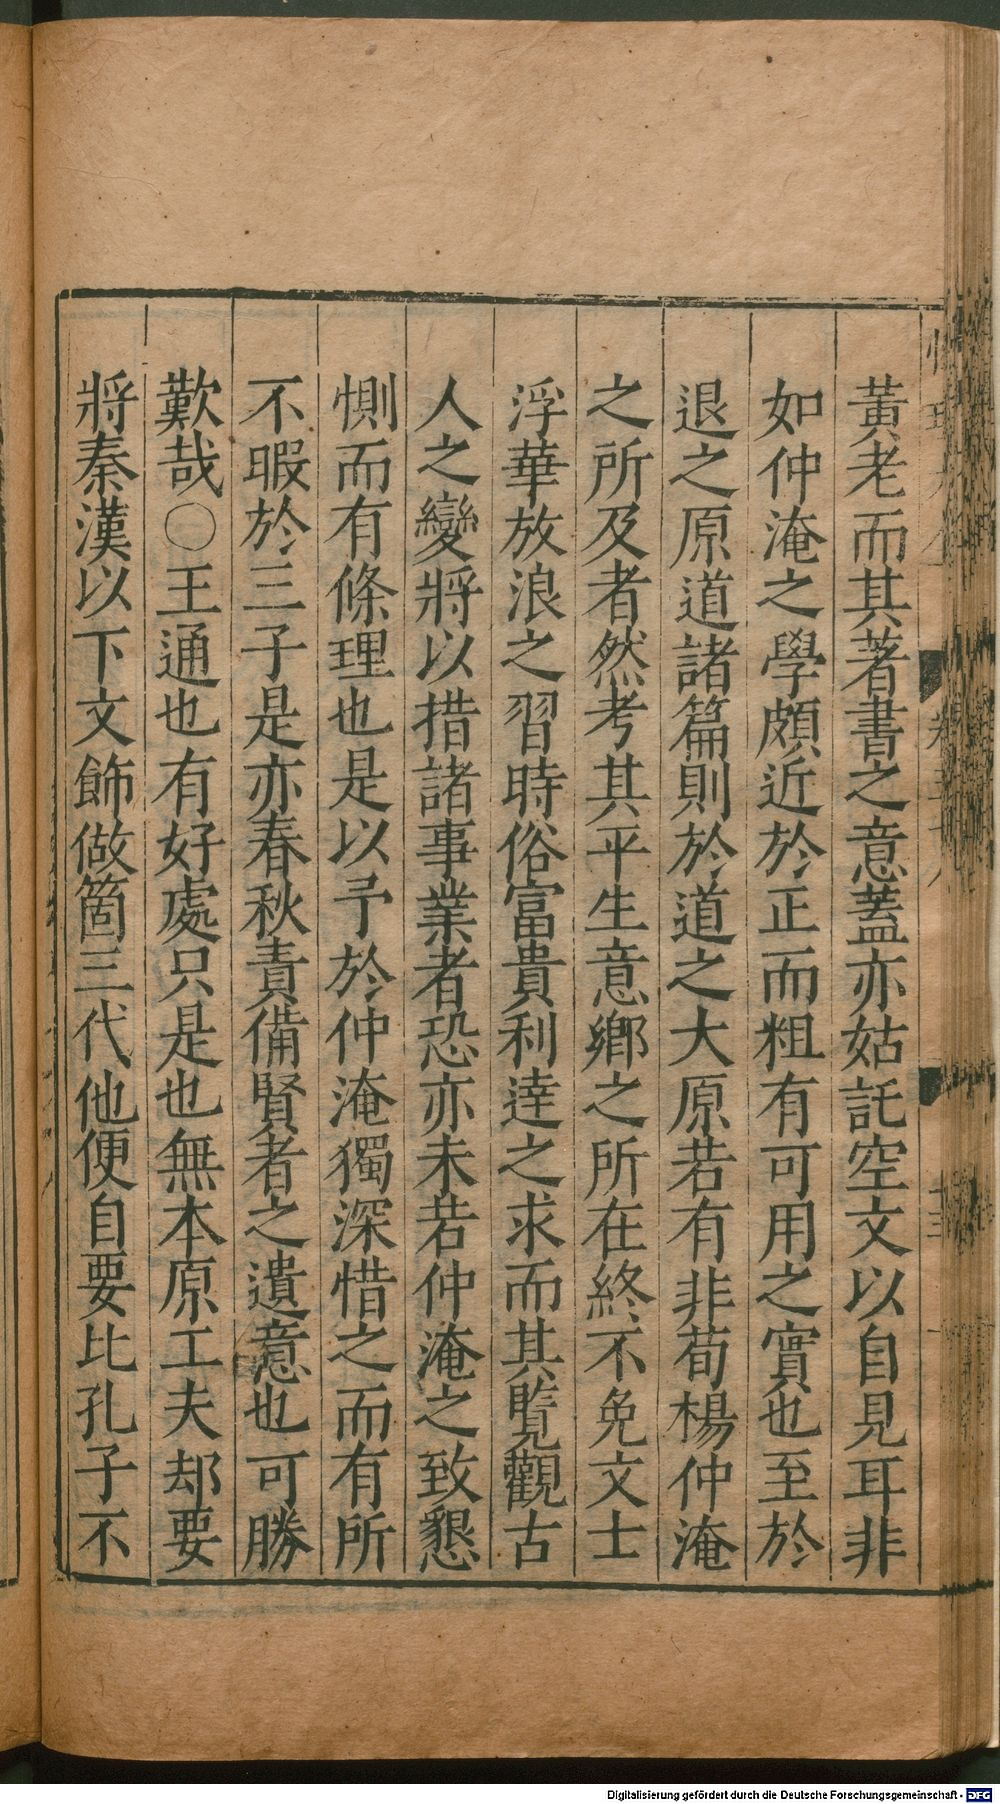 黃老而其著書之意蓋亦姑託空文以自見耳非
如仲淹之學頗近於正而粗有可用之實也至於
退之原道諸篇則於道之大原若有非荀楊仲淹
之所及者然考其平生意鄉之所在終不免文士
浮華放浪之習時俗富貴利逹之求而其覽觀古
人之變將以措諸事業者恐亦未若仲淹之致懇
惻而有條理也是以予於仲淹獨深惜之而有所
不暇於三子是亦春秋責備賢者之遺意也可勝
歎哉○王通也有好處只是也無本原工夫却要
將秦漢以下文飾做箇三代他便自要比孔子不
Digitalisierung gefördert durch die Deutsche Forschungsgemeinschaft - DFG